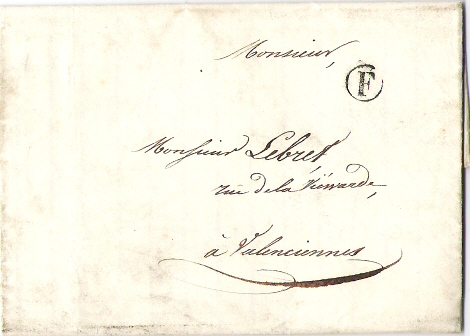 Monsieur,
F
Monsieur Lebret,
rue de la Viéwarde,
à Valenciennes